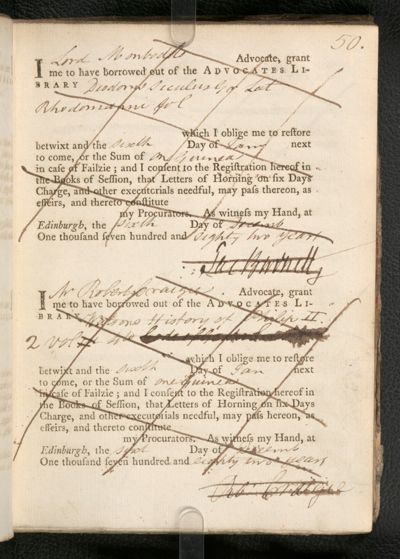 50.
I Lord Monboddo Advocate, grant
me to have borrowed out of the ADVOCATES LI-
BRARY Diodorus Siculus Gr Lat
Rhodomanni fol
which I oblige me to reſtore
betwixt and the sixth Day of Jany next
to come, or the Sum of one guinea
in caſe of Failzie; and I conſent to the Regiſtration hereof in
the Books of Seſſion, that Letters of Horning on ſix Days
Charge, and other executorials needful, may paſs thereon, as
effeirs, and thereto conſtitute
my Procurators. As witneſs my Hand, at
Edinburgh, the sixth Day of Decemb
One thouſand ſeven hundred and eighty two years
Ja: Burnett
I Mr Robert Craigie Advocate, grant
me to have borrowed out of the ADVOCATES LI-
BRARY Watsons History of Philip II
2 vol 4to
which I oblige me to reſtore
betwixt and the sixth Day of Jan next
to come, or the Sum of one guinea
in caſe of Failzie; and I conſent to the Regiſtration hereof in
the Books of Seſſion, that Letters of Horning on ſix Days
Charge, and other executorials needful, may paſs hereon, as
effeirs, and thereto conſtitute
my Procurators. As witneſs my Hand, at
Edinburgh, the sixt Day of Decemb
One thouſand ſeven hundred and eighty two years
Ro: Craigie